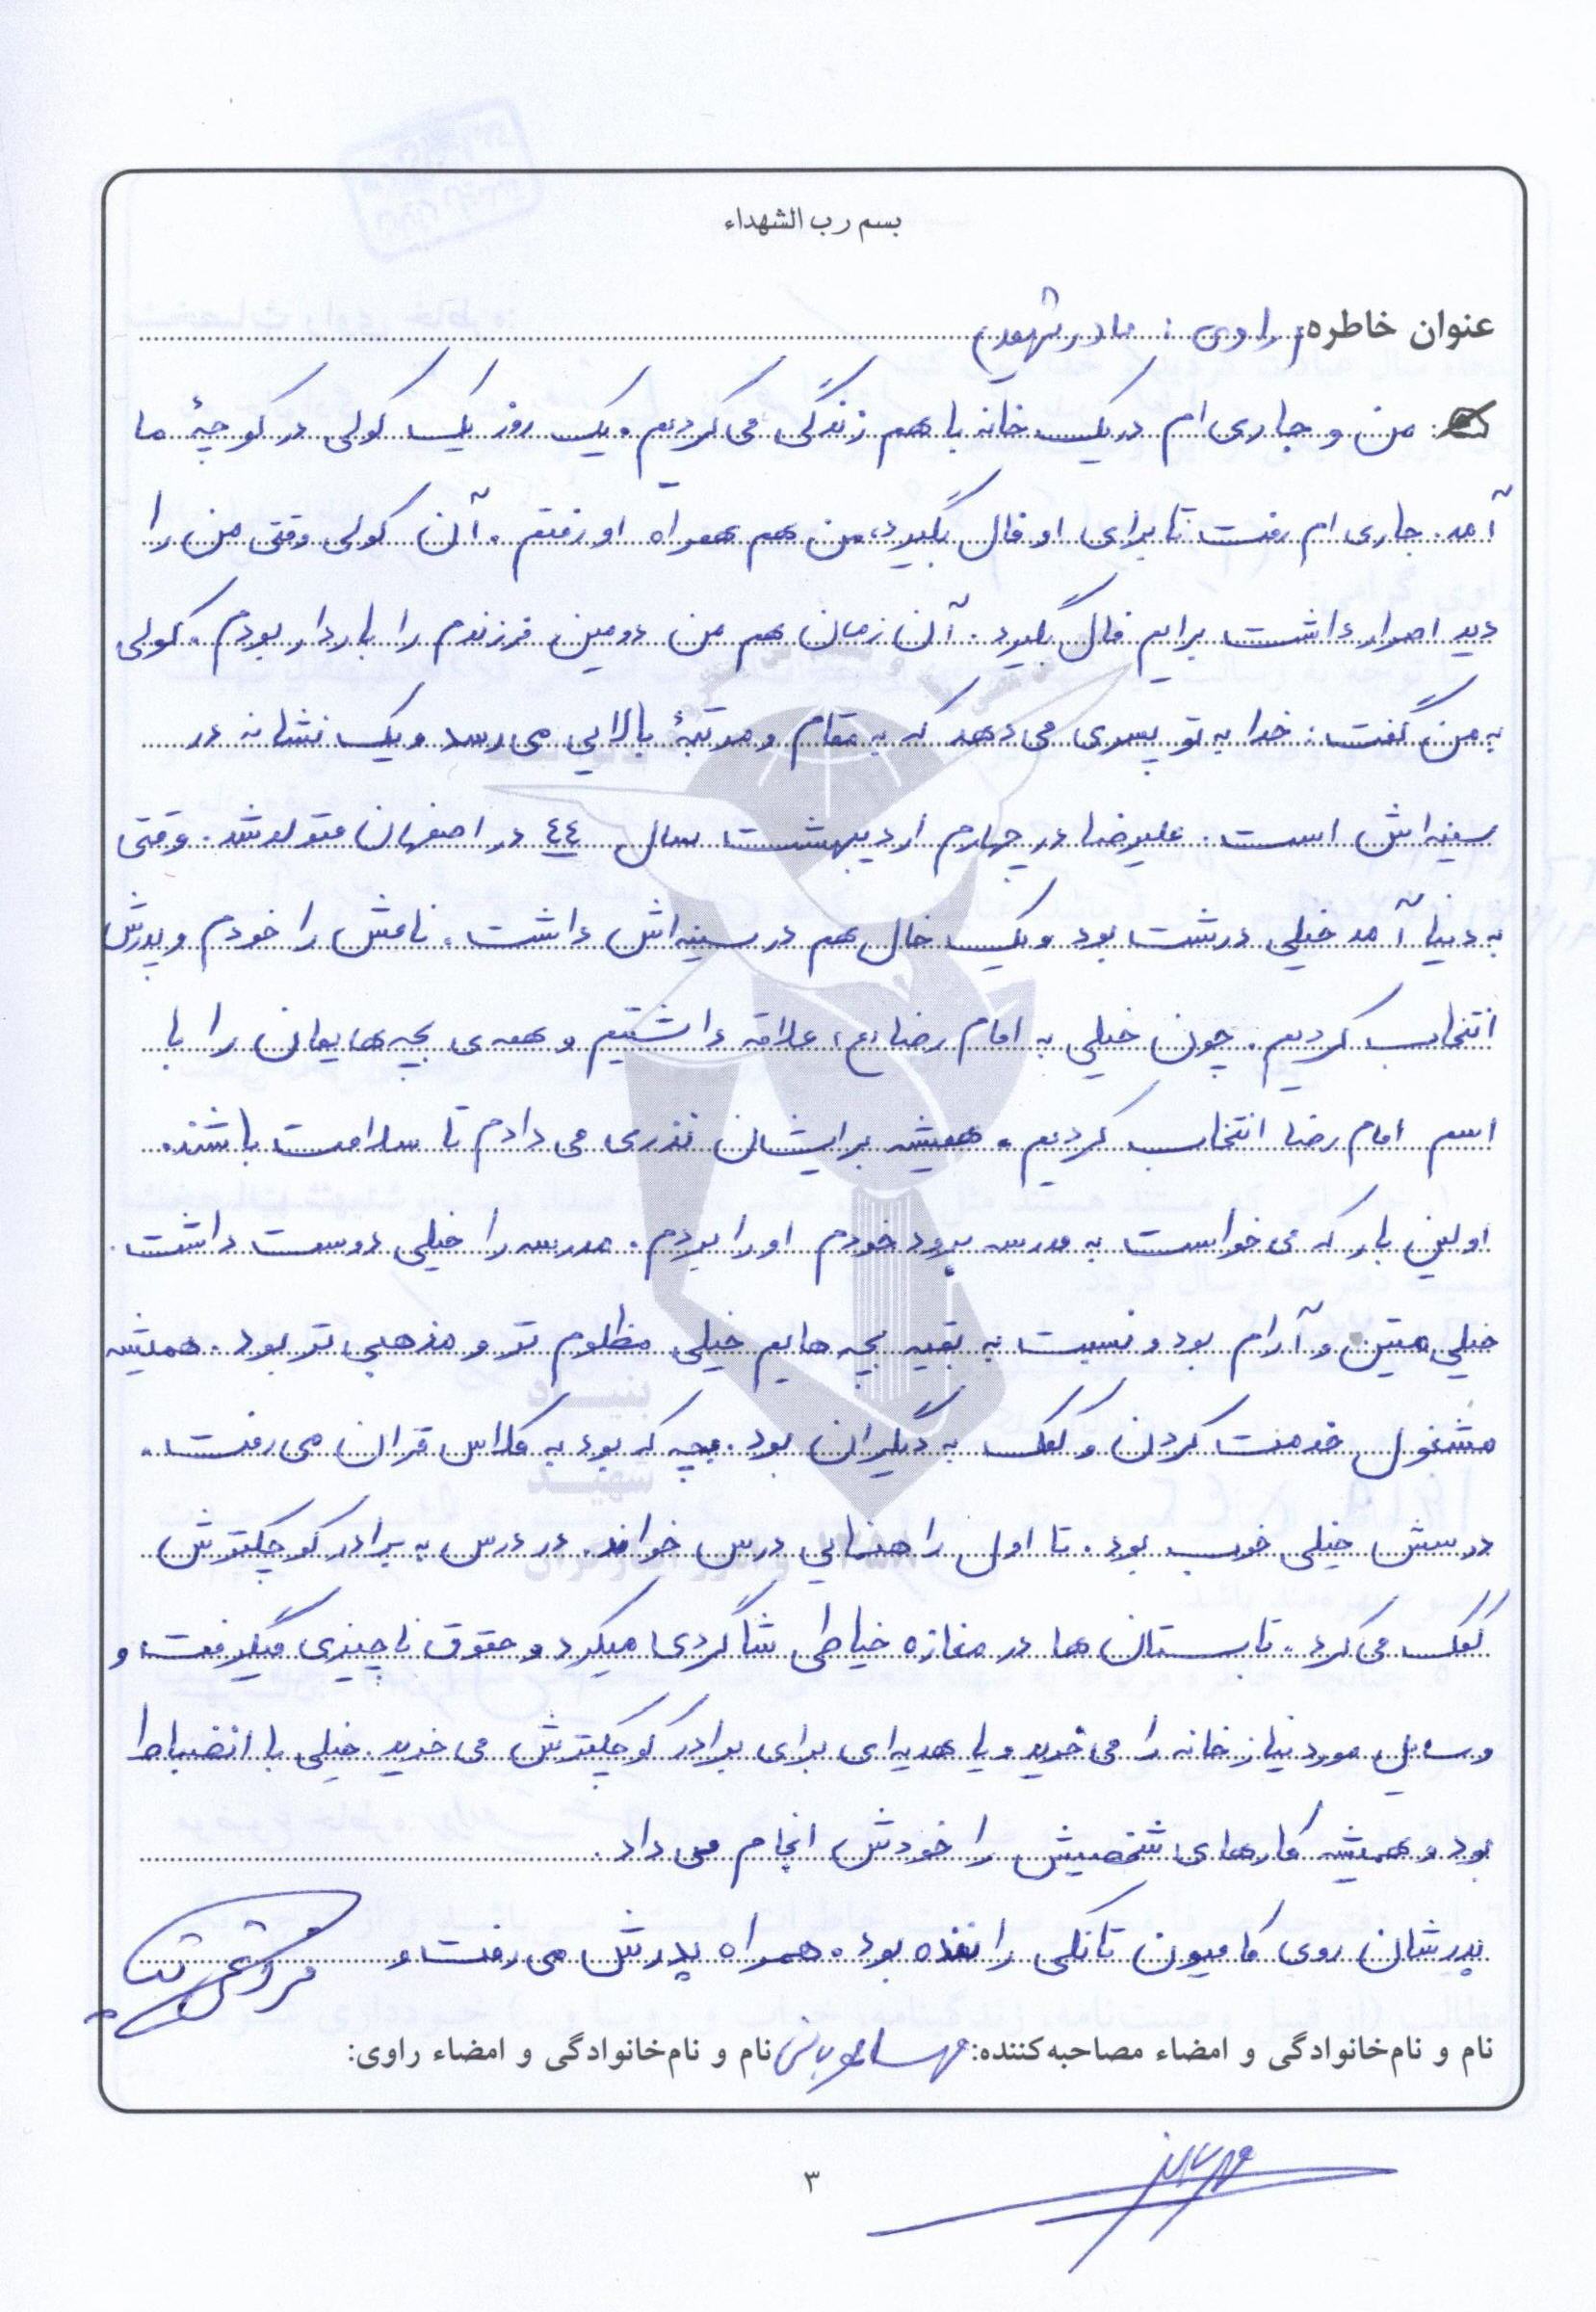 بسم رب الشهداء
عنوان خاطره: (راوی: مادر شهید)
من و جاری ام در یک خانه با هم زندگی می کردیم. یک روز یک کولی در کوچهٔ ما
آمد. جاری ام رفت تا برای او فال بگیرد، من هم همراه او رفتم. آن کولی وقتی من را
دید اصرار داشت برایم فال بگیرد. آن زمان هم من دومین فرزندم را باردار بودم. کولی
به من گفت: خدا به تو پسری می دهد که به مقام و مرتبهٔ بالایی می رسد و یک نشانه در
سینه اش است. علیرضا در چهارم اردیبهشت سال ٤٤ در اصفهان متولد شد. وقتی
به دنیا آمد خیلی درشت بود و یک خال هم در سینه اش داشت. نامش را خودم و پدرش
انتخاب کردیم. چون خیلی به امام رضا (ع) علاقه داشتیم و همه ی بچه هایمان را با
اسم امام رضا انتخاب کردیم. همیشه برایشان نذری می دادم تا سلامت باشند.
اولین بار که می خواست به مدرسه برود خودم او را بردم. مدرسه را خیلی دوست داشت.
خیلی متین و آرام بود و نسبت به بقیه بچه هایم خیلی مظلوم تر و مذهبی تر بود. همیشه
مشغول خدمت کردن و کمک به دیگران بود. بچه که بود به کلاس قران می رفت.
درسش خیلی خوب بود. تا اول راهنمایی درس خواند. در درس به برادر کوچکترش
کمک می کرد. تابستان ها در مغازه خیاطی شاگردی میکرد و حقوق ناچیزی میگرفت و
وسایل مورد نیاز خانه را می خرید و یا هدیه ای برای برادر کوچکترش می خرید. خیلی با انضباط
بود و همیشه کارهای شخصیش را خودش انجام می داد.
پدرشان روی کامیون تانکی راننده بود. همراه پدرش می رفت و
نام و نام‌خانوادگی و امضاء مصاحبه‌کننده: نام و نام‌خانوادگی و امضاء راوی:
۳
بنیاد
شهید